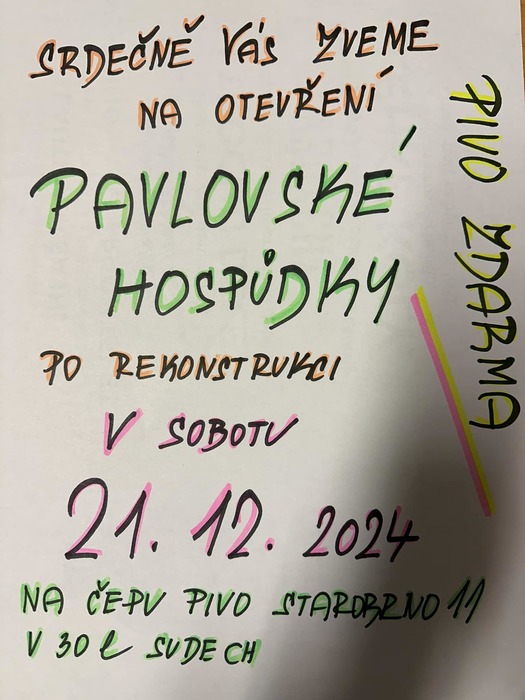 SRDEČNĚ VÁS ZVEME
NA OTEVŘENÍ
PAVLOVSKÉ
HOSPŮDKY
PO REKONSTRUKCI
V SOBOTU
21. 12. 2024
NA ČEPU PIVO STAROBRNO 11
V 30 l SUDECH
PIVO ZDARMA